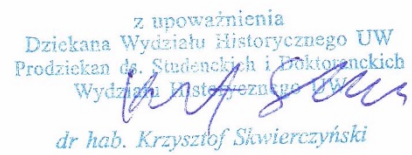 z upoważnienia
Dziekana Wydziału Historycznego UW
Prodziekan ds. Studenckich i Doktoranckich
Wydziału Historycznego UW
dr hab. Krzysztof Skwierczyński